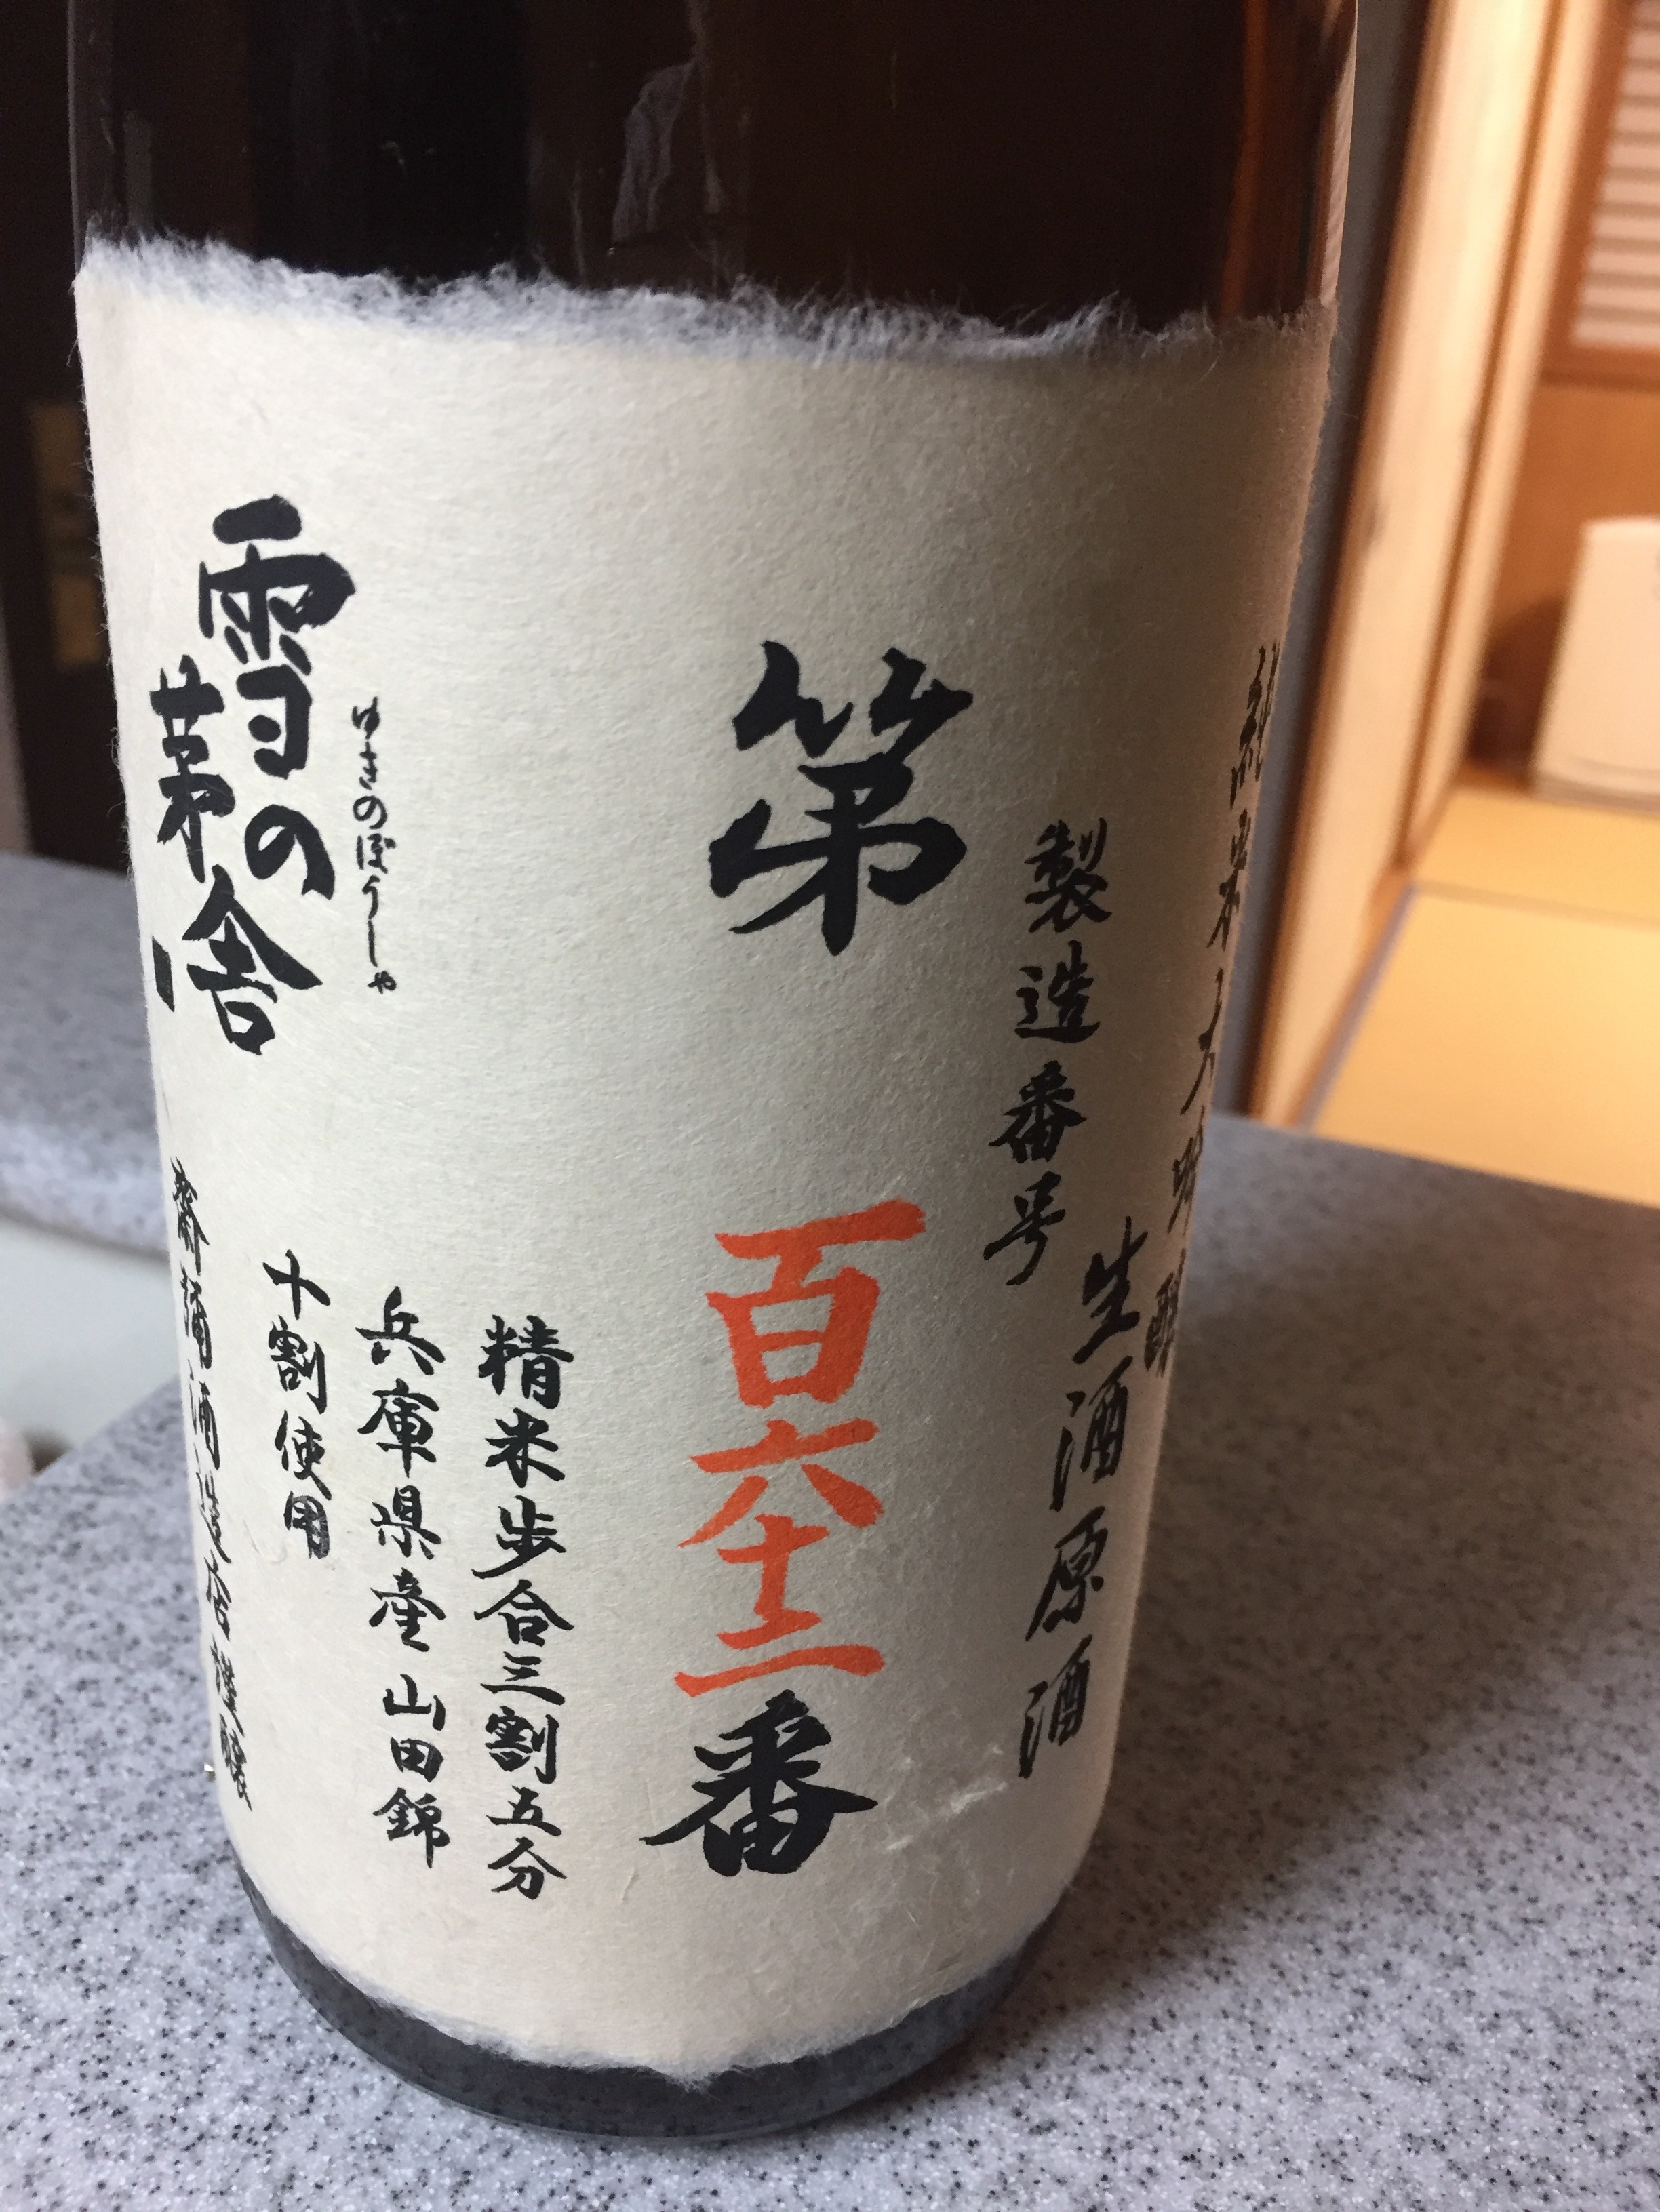 純米大吟醸
生酒原酒
製造番号
第百六十二番
精米歩合三割五分
兵庫県産山田錦
十割使用
ゆきのぼうしゃ
雪の茅舎
齋彌酒造店謹醸